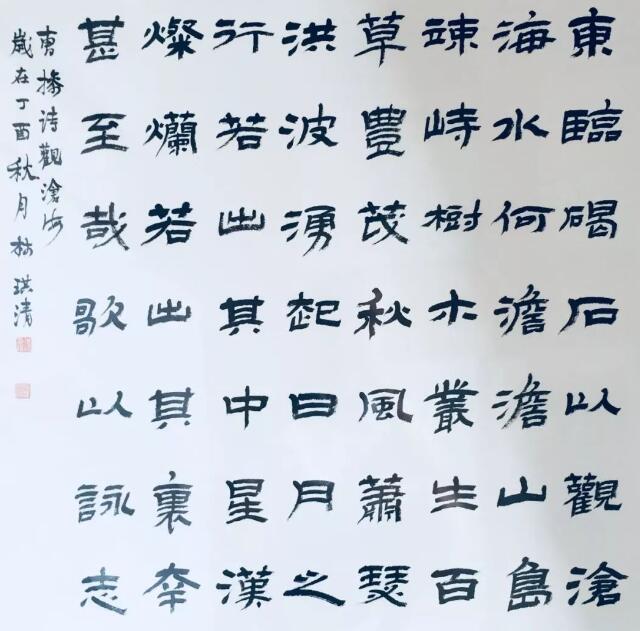 東臨碣石以觀滄
海水何澹澹山島
竦峙樹木叢生百
草豐茂秋風蕭瑟
洪波湧起日月之
行若出其中星漢
燦爛若出其裏幸
甚至哉歌以詠志
曹操诗觀滄海
歲在丁酉秋月 林 清